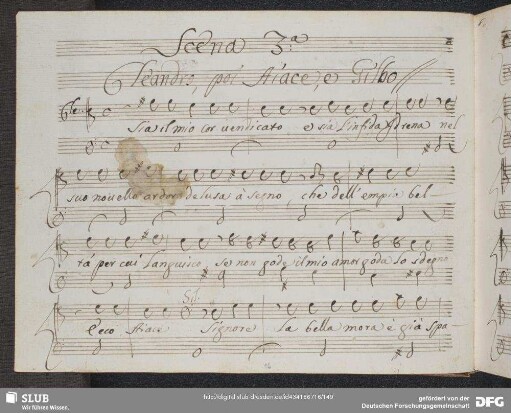 Scena 3.a
Cleandro, poi Aiace, e Gilbo
Cle.
Sia il mio cor vendicato e sia l'infida Adrena nel
suo novello ardor delusa à segno, che dell'empia bel-
tà per cui languisco, se non gode il mio amor goda lo sdegno
Gil.
Ecco Aiace Signore la bella mora è già spa-
SLUB
Wir führen Wissen.
http://digital.slub-dresden.de/id434166716/149
gefördert von der
Deutschen Forschungsgemeinschaft
DFG